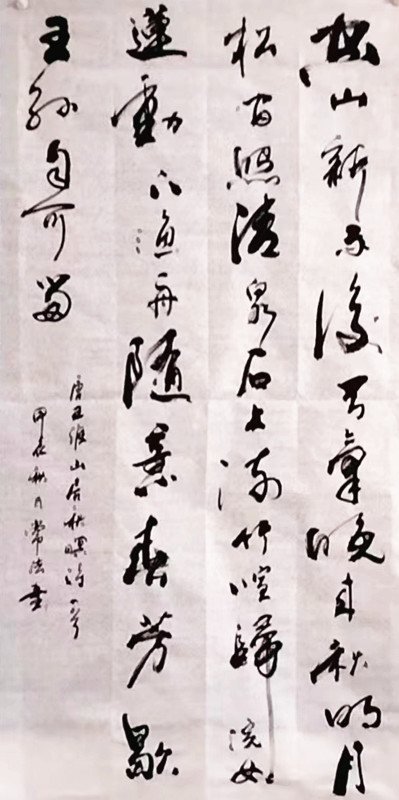 空山新雨後天氣晚來秋明月
松間照清泉石上流竹喧歸浣女
蓮動下漁舟隨意春芳歇
王孫自可留
唐王維山居秋暝詩一首
甲辰秋月常書